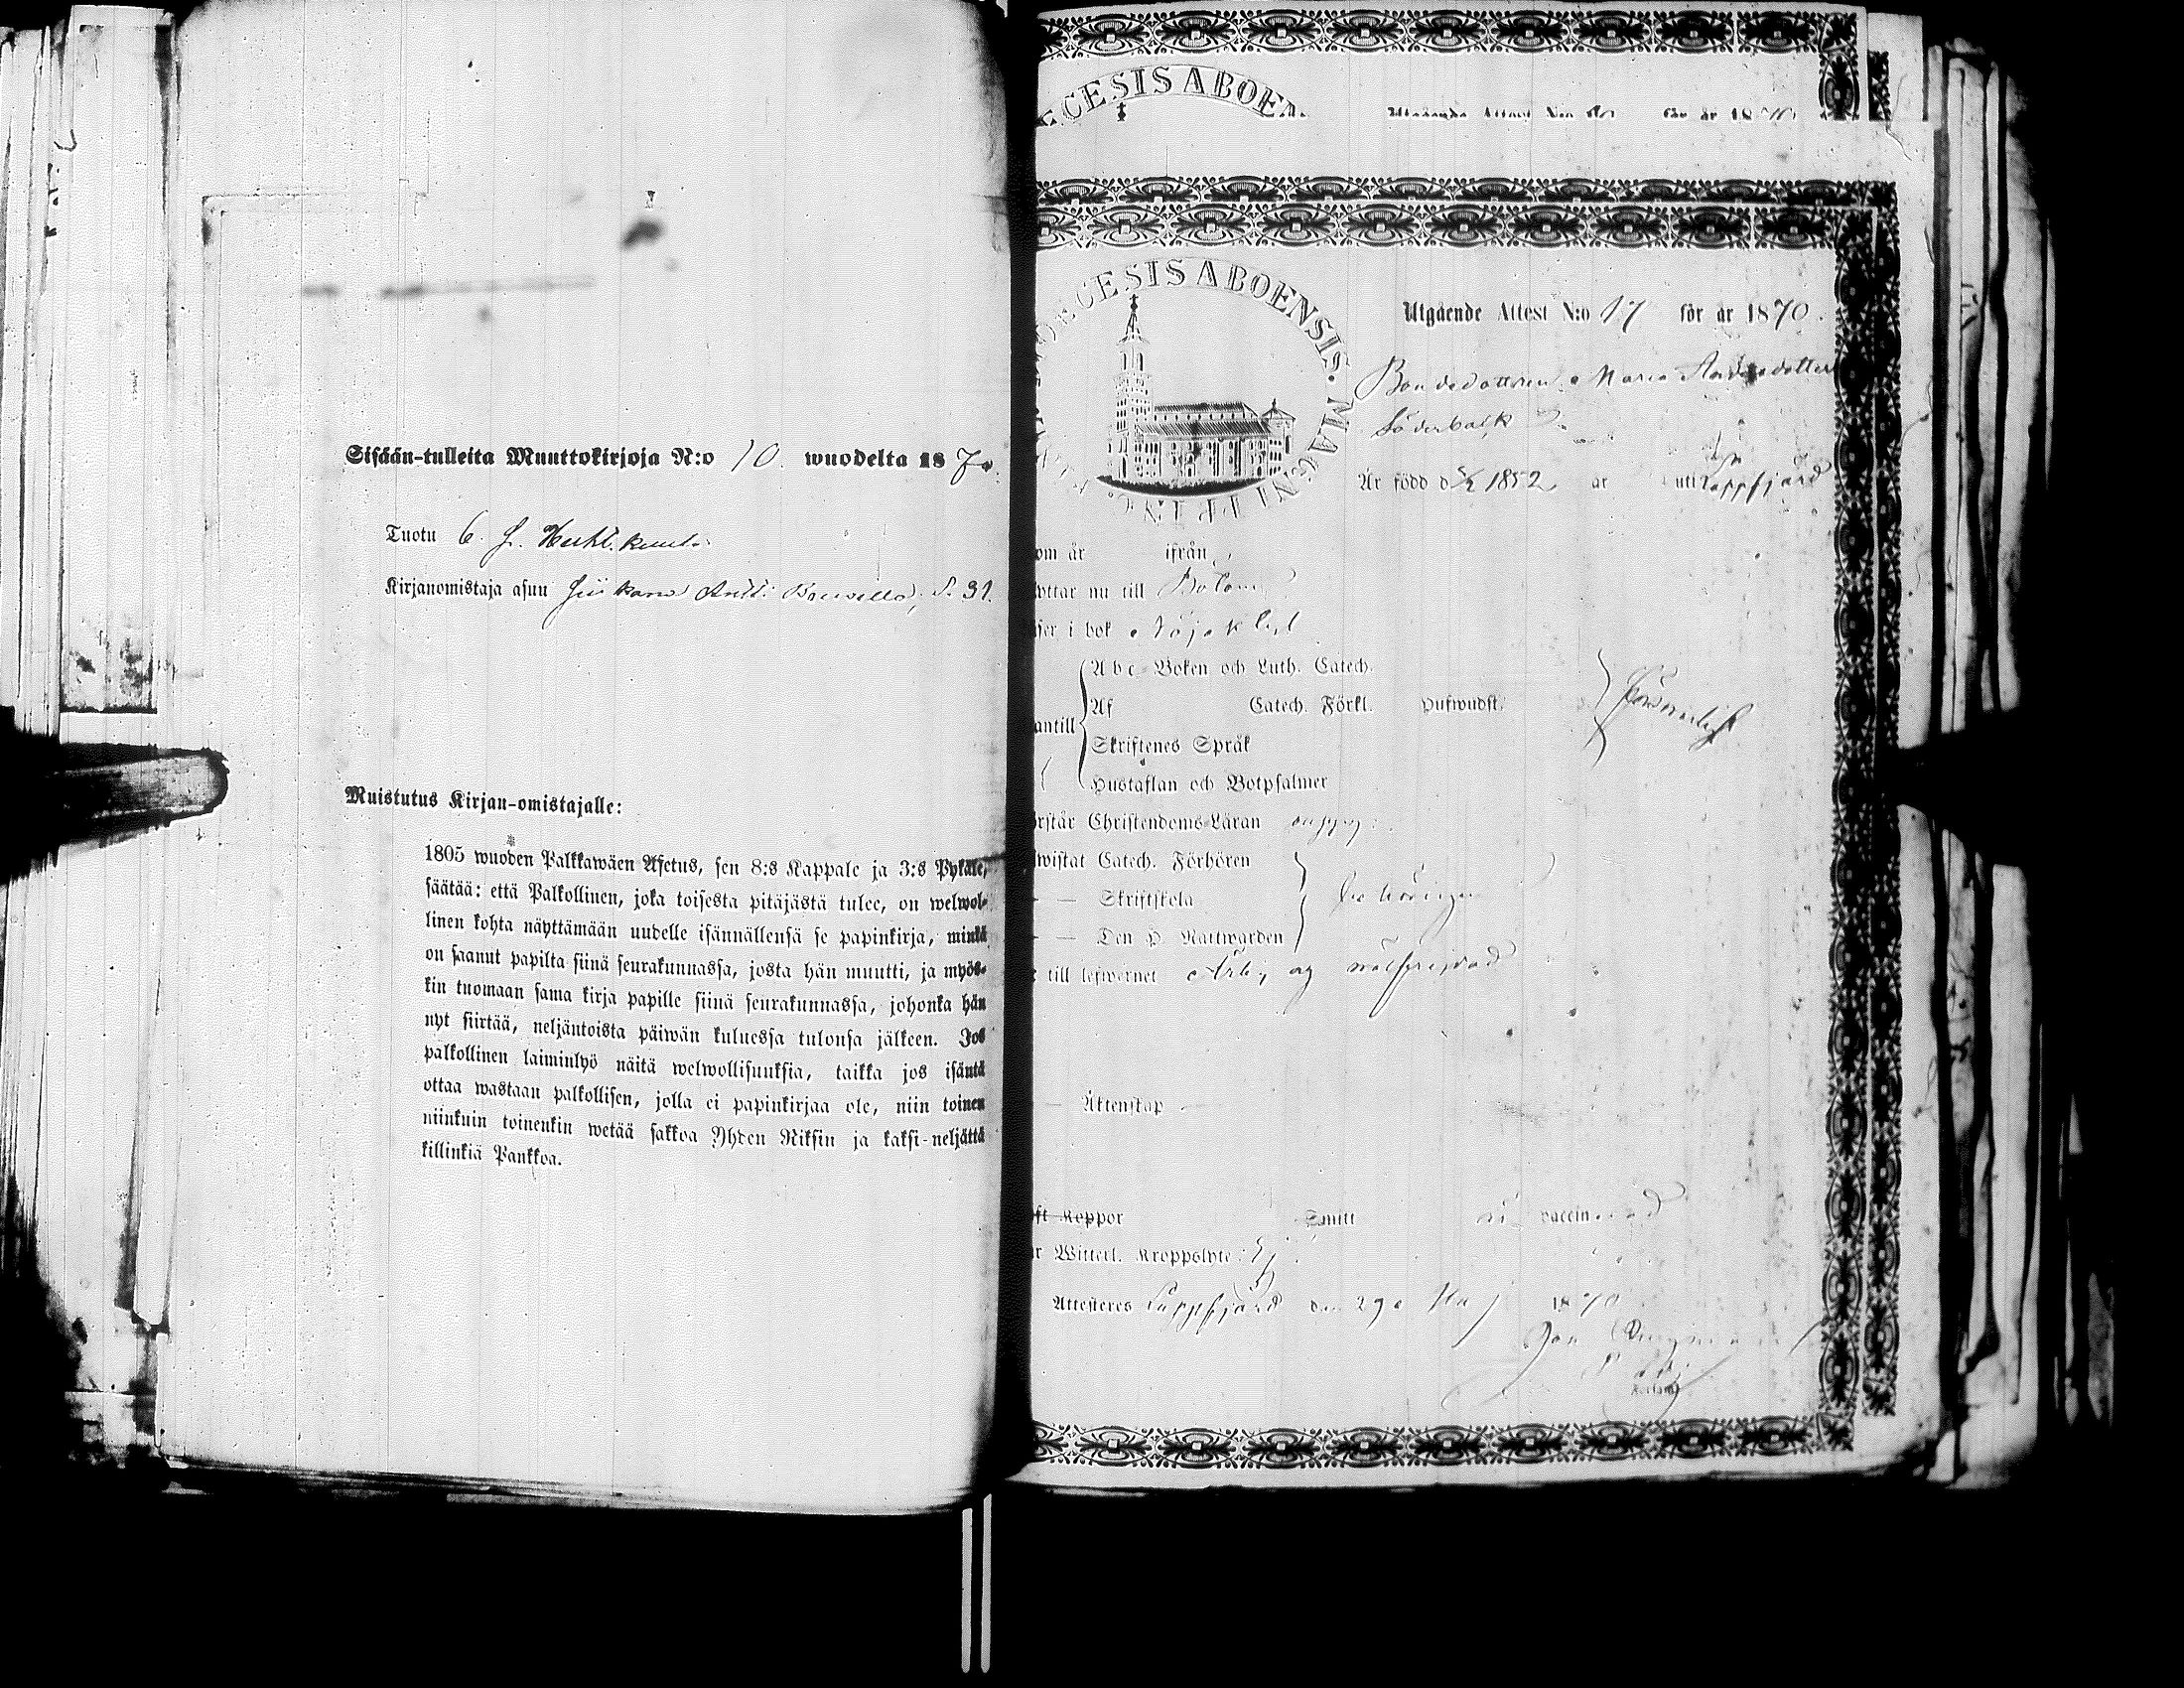 Sisään-tulleita Muuttokirjoja N:o 10. wuodelta 1870.
Tuotu 6. p. Huhti kuuta
Kirjanomistaja asuu Antti S. 31.
Muistutus Kirjan-omistajalle:
1805 wuoden Palkkawäen Asetus, sen 8:s Kappale ja 3:s Pykäle,
säätää: että Palkollinen, joka toisesta pitäjästä tulee, on welwol-
linen kohta näyttämään uudelle isännällensä se papinkirja, minkä
on saanut papilta siinä seurakunnassa, josta hän muutti, ja myös-
kin tuomaan sama kirja papille siinä seurakunnassa, johonka hän
nyt siirtää, neljäntoista päiwän kuluessa tulonsa jälkeen. Jos
palkollinen laiminlyö näitä welwollisuuksia, taikka jos isäntä
ottaa wastaan palkollisen, jolla ei papinkirjaa ole, niin toinen
niinkuin toinenkin wetää sakkoa Yhden Riksin ja kaksi-neljättä
killinkiä Pankkoa.
ECESIS ABOEN
Utgående Attest N:o för år 1870.
OECESIS ABOENSIS. MAGNI
Utgående Attest N:o 17 för år 1870.
Bondedottren Maria Andersdotter
Söderback
Är född d 5/2 1852 är uti Lappfjärd
om år ifrån
yttar nu till Bötom
äser i bok Nöjaktigt
A b c-Boken och Luth. Catech.
Af Catech. Förkl. Hufwudst.
antill
Skriftenes Språk
Försvarligt
Hustaflan och Botpsalmer
örstår Christendoms-Läran
iwistat Catech. Förhören
— Skriftskola behörigen
— Den H. Nattwarden
till lefwernet Ärlig og wälfrejdad
— Äktenskap
ft Koppor Smitt är vaccinerad
r Witterl. Kroppslyte: Ej
Attesteras Lappfjärd den 29e Maj 1870